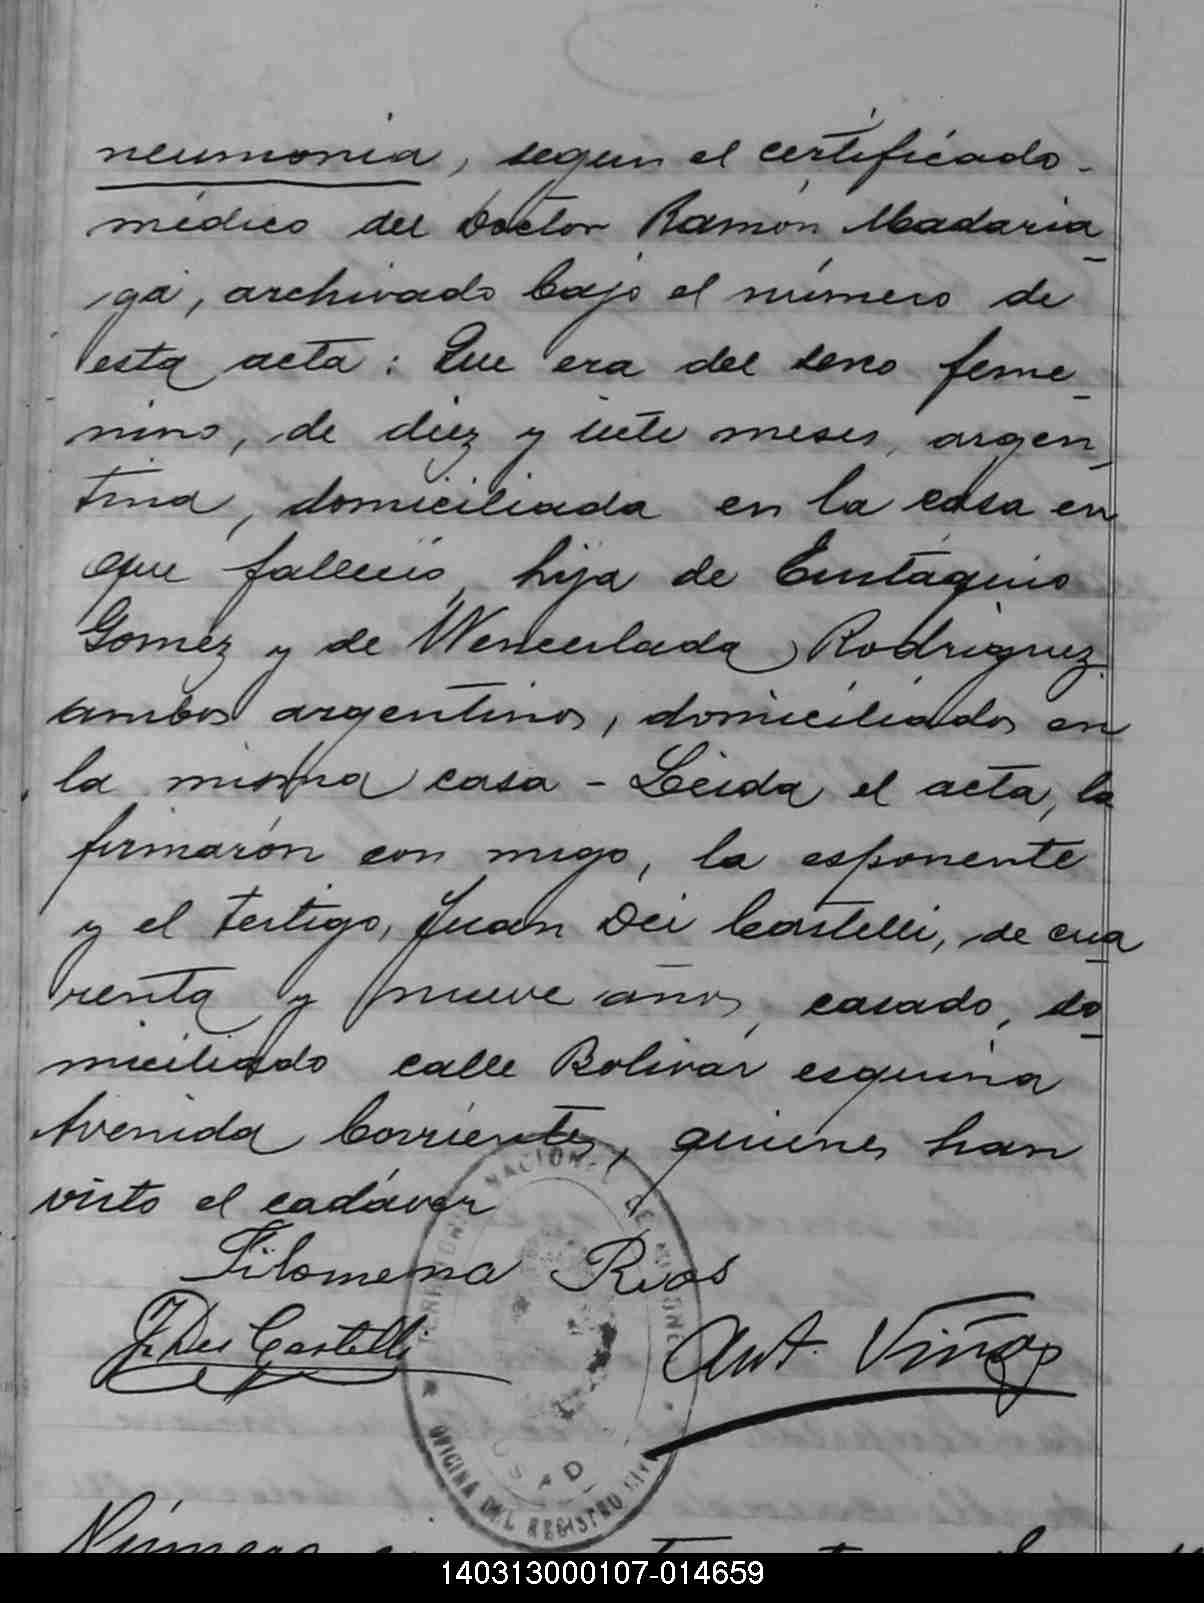 neumonia, segun el certificado
médico del Doctor Ramón Madaria
ga, archivado bajo el número de
esta acta: Que era del sexo feme
nino, de diez y siete meses, argen
tina, domiciliada en la casa en
que falleció, hija de Eustaquio
Gomez y de Wenceslada Rodriguez
ambos argentinos, domiciliados en
la misma casa - Leida el acta, la
firmarón con migo, la esponente
y el testigo, Juan Dei Castelli, de cua
renta y nueve años, casado, do
miciliado calle Bolivar esquina
Avenida Corrientes, quienes han
visto el cadáver
Filomena Rios
J. Dei Castelli
Ant. Viñas
TERRITORIO NACIONAL DE MISIONES
OFICINA DEL REGISTRO CIVIL
POSADAS
Número
140313000107-014659